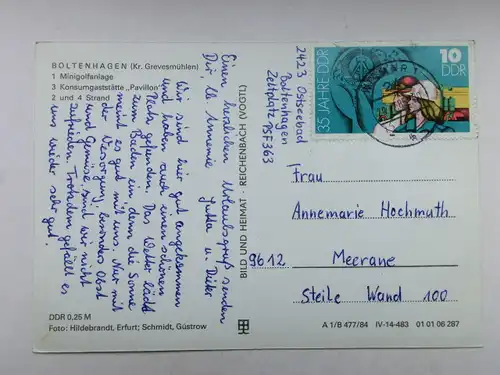 BOLTENHAGEN (Kr. Grevesmühlen)
1 Minigolfanlage
3 Konsumgaststätte „Pavillon“
2 und 4 Strand
Einen herzlichen Urlaubsgruß senden
Dir, lb. Annemie Jutta u. Dieter
Wir sind hier gut angekommen
und haben auch einen schönen
Platz gefunden. Das Wetter lädt
zum Baden ein, denn die Sonne
meint es gut mit uns. Nur mit
der Versorgung, besonders Obst
und Gemüse sind wir nicht
zufrieden. Trotzdem gefällt es
uns wieder sehr gut.
DDR 0,25 M
Foto: Hildebrandt, Erfurt; Schmidt, Güstrow
BILD UND HEIMAT REICHENBACH (VOGTL)
2423 Ostseebad
Boltenhagen
Zeltplatz PSF 363
35 JAHRE DDR
10
DDR
Frau
Annemarie Hochmuth
9612 Meerane
Steile Wand 100
A 1/B 477/84 IV-14-483 01 01 06 287